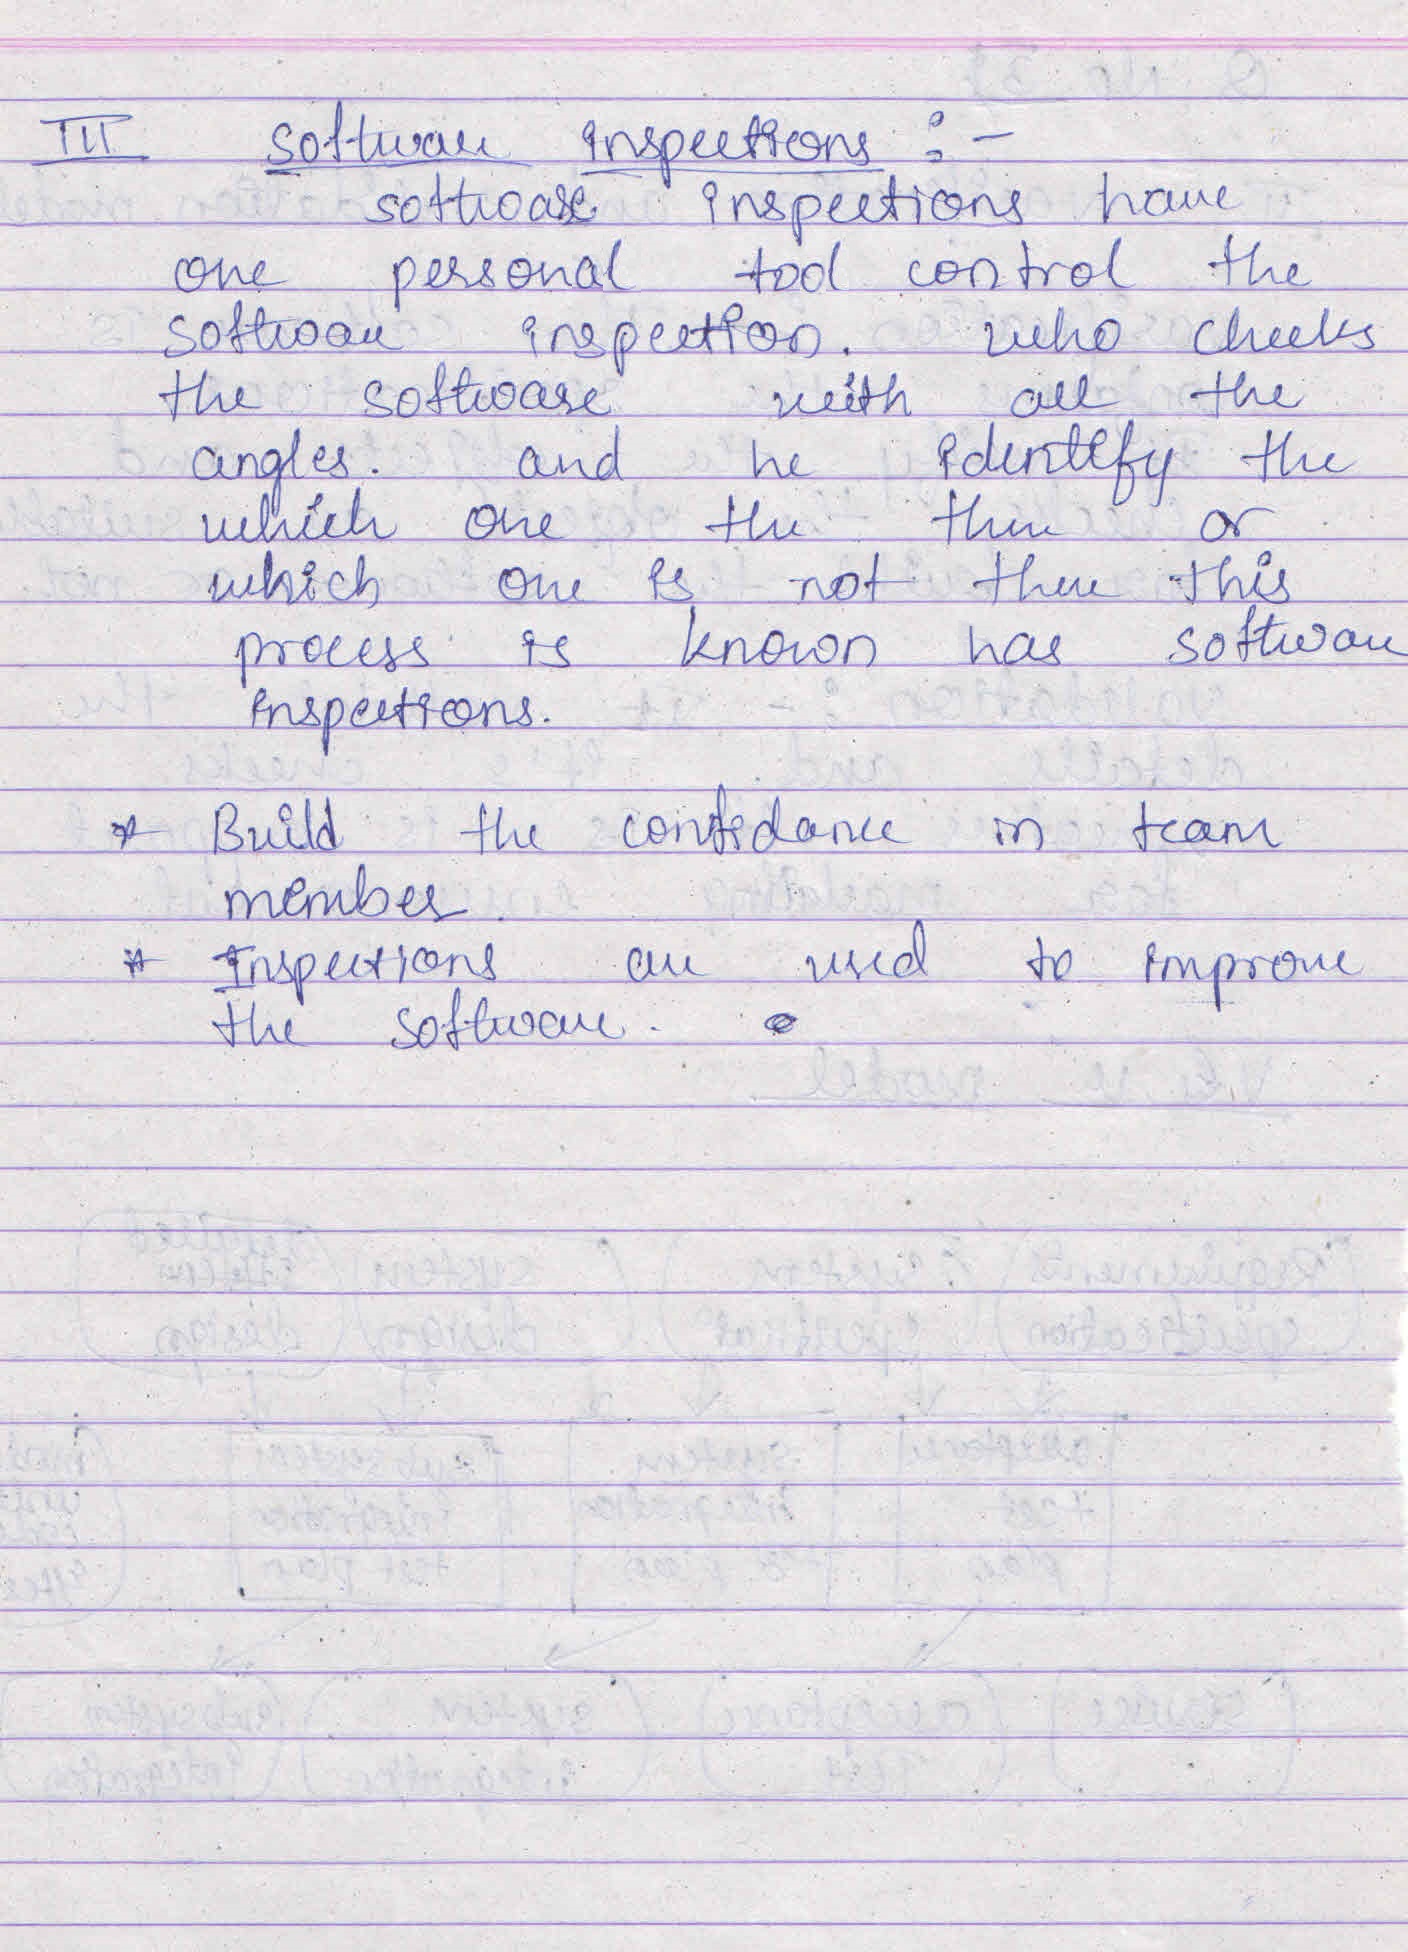 III Software inspections :-
software inspections have
one personal tool control the
software inspection. who checks
the software with all the
angles. and he identify the
which one the there or
which one is not there this
process is known has software
inspections.
* Build the confidance in team
member.
* Inspections are used to improve
the software.